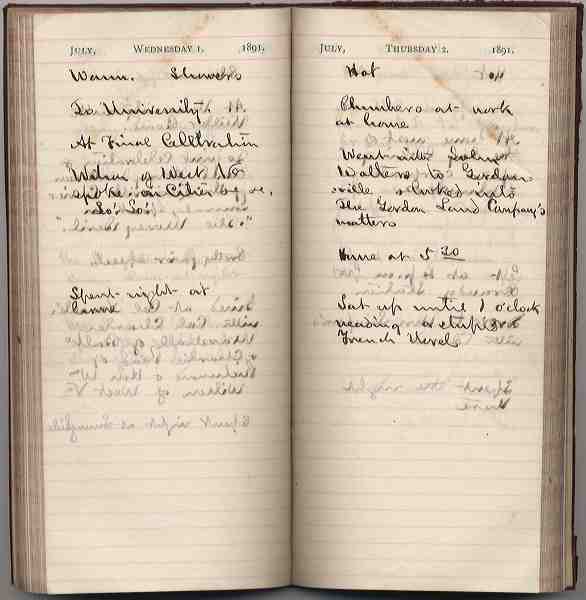 JULY, WEDNESDAY 1, 1891.
Warm. Showers
To University.
At Final Celebration
Wilson of West Va
spoke on Cities &c.
"So! So!
Spent night at
home
JULY, THURSDAY 2. 1891.
Hot
Plumbers at work
at home
Went with
Walters to Gordons-
ville & looked into
The Gordon Land Company's
matters
Home at 5 30
Sat up until 1 o'clock
reading a stupid
French Novel.